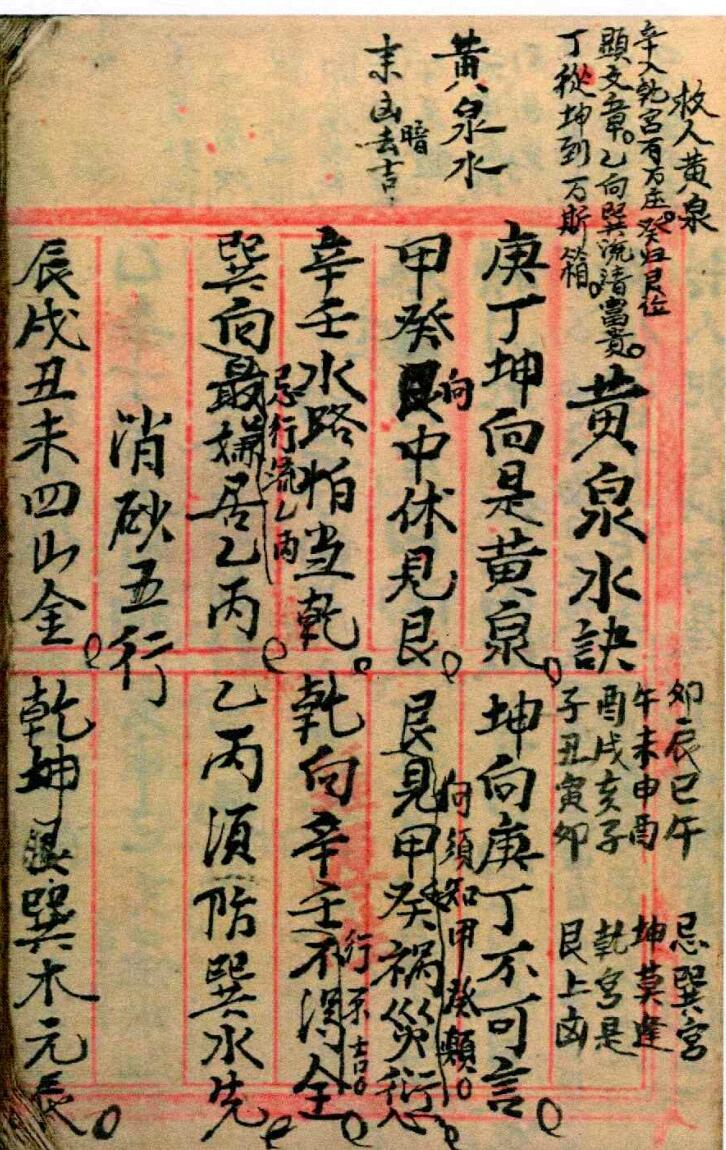 救人黄泉
辛入乾宮百万庄。癸归艮位
顯文章。乙向巽流清富貴。
丁從坤到万斯箱。
黄泉水
来凶去吉
暗
黄泉水訣
卯辰巳午 忌巽宮
午未申酉 坤莫逢
酉戌亥子 乾宮是
子丑寅卯 艮上凶
庚丁坤向是黄泉。坤向庚丁不可言。
向
向須知甲癸頪。
甲癸艮中休見艮。艮見甲癸禍災愆。
辛壬水路怕当乾。乾向辛壬不淂全。
行不吉。
忌行流乙丙
巽向最嫌居乙丙。乙丙須防巽水先。
消砂五行
辰戌丑未四山金。乾坤艮巽木元辰。